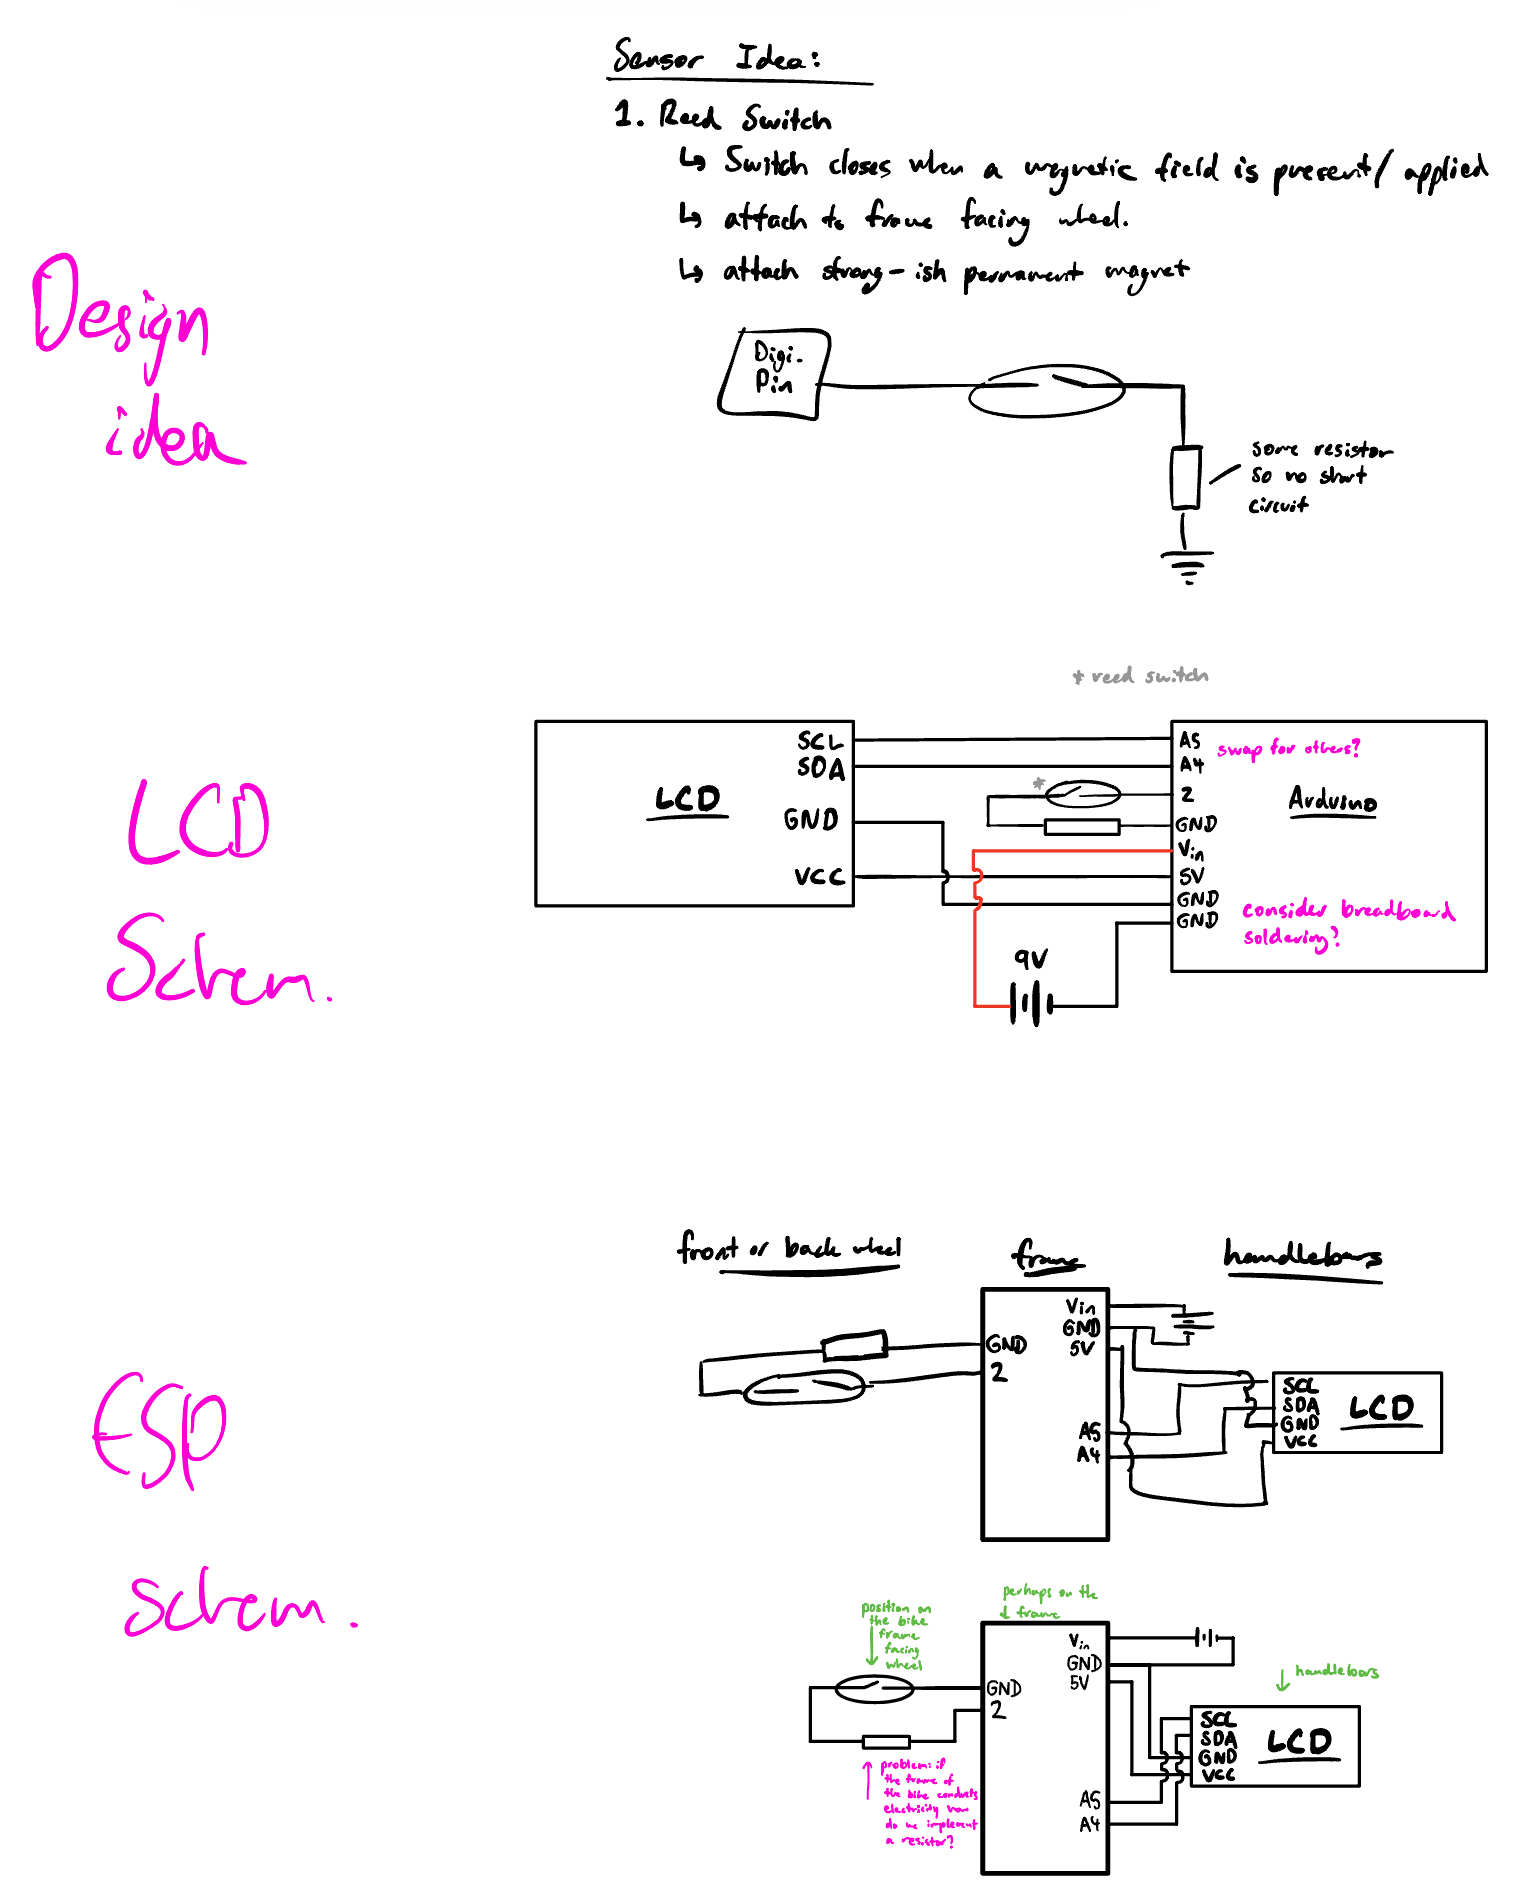 Sensor Idea:
1. Reed Switch
↳ Switch closes when a magnetic field is present/ applied
↳ attach to frame facing wheel.
↳ attach strong-ish permanent magnet
Design
idea
Digi-
Pin
some resistor
so no short
circuit
* reed switch
LCD
Schem.
LCD
SCL
SDA
GND
VCC
*
9V
A5
A4
2
GND
Vin
5V
GND
GND
swap for others?
Arduino
consider breadboard
soldering?
front or back wheel
frame
handlebars
ESP
schem.
GND
2
Vin
GND
5V
A5
A4
SCL
SDA
GND
VCC
LCD
position on
the bike
frame
facing
wheel
perhaps on the
frame
handlebars
GND
2
Vin
GND
5V
A5
A4
SCL
SDA
GND
VCC
LCD
problem: if
the frame of
the bike conducts
electricity how
do we implement
a resistor?